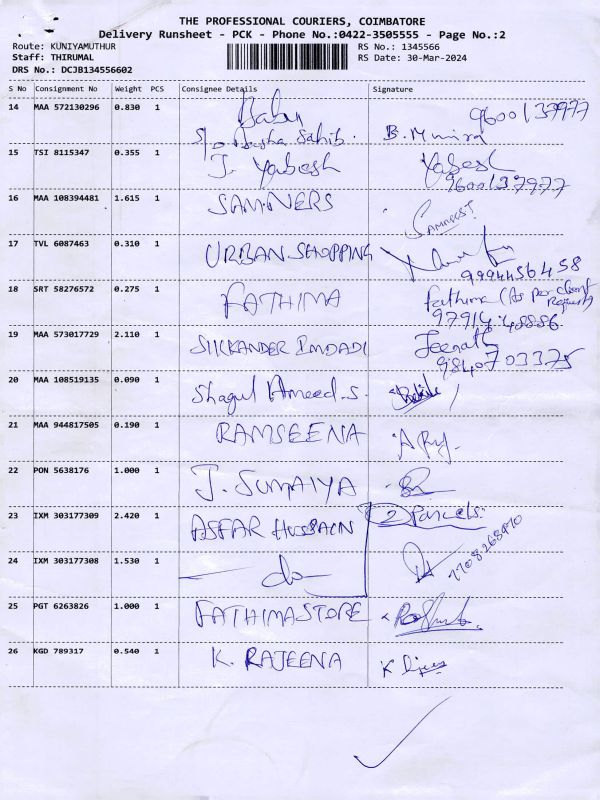 THE PROFESSIONAL COURIERS, COIMBATORE
Delivery Runsheet - PCK - Phone No.:0422-3505555 - Page No.:2
Route: KUNIYAMUTHUR
Staff: THIRUMAL
DRS No.: DCJB134556602
RS No.: 1345566
RS Date: 30-Mar-2024
S No Consignment No Weight PCS Consignee Details Signature
14 MAA 572130296 0.830 1 Babu 9600137977
S/o Aysha Sahib. B. Munira
15 TSI 8115347 0.355 1 J. Yabesh Yabesh
9600137977
16 MAA 108394481 1.615 1 SAMNERS
17 TVL 6087463 0.310 1 URBAN SHOPPING
9994456458
18 SRT 58276572 0.275 1 FATHIMA Fathima (As per client
Request)
97914 48886
19 MAA 573017729 2.110 1 SIICKANDER IMDADI Jeenath
9840703375
20 MAA 108519135 0.090 1 Shagul Hameed.S.
21 MAA 944817505 0.190 1 RAMSEENA
22 PON 5638176 1.000 1 J. SUMAIYA
23 IXM 303177309 2.420 1 ASFAR HUSSAIN 2 Parcels.
24 IXM 303177308 1.530 1 — do —
25 PGT 6263826 1.000 1 FATHIMA STORE
26 KGD 789317 0.540 1 K. RAJEENA